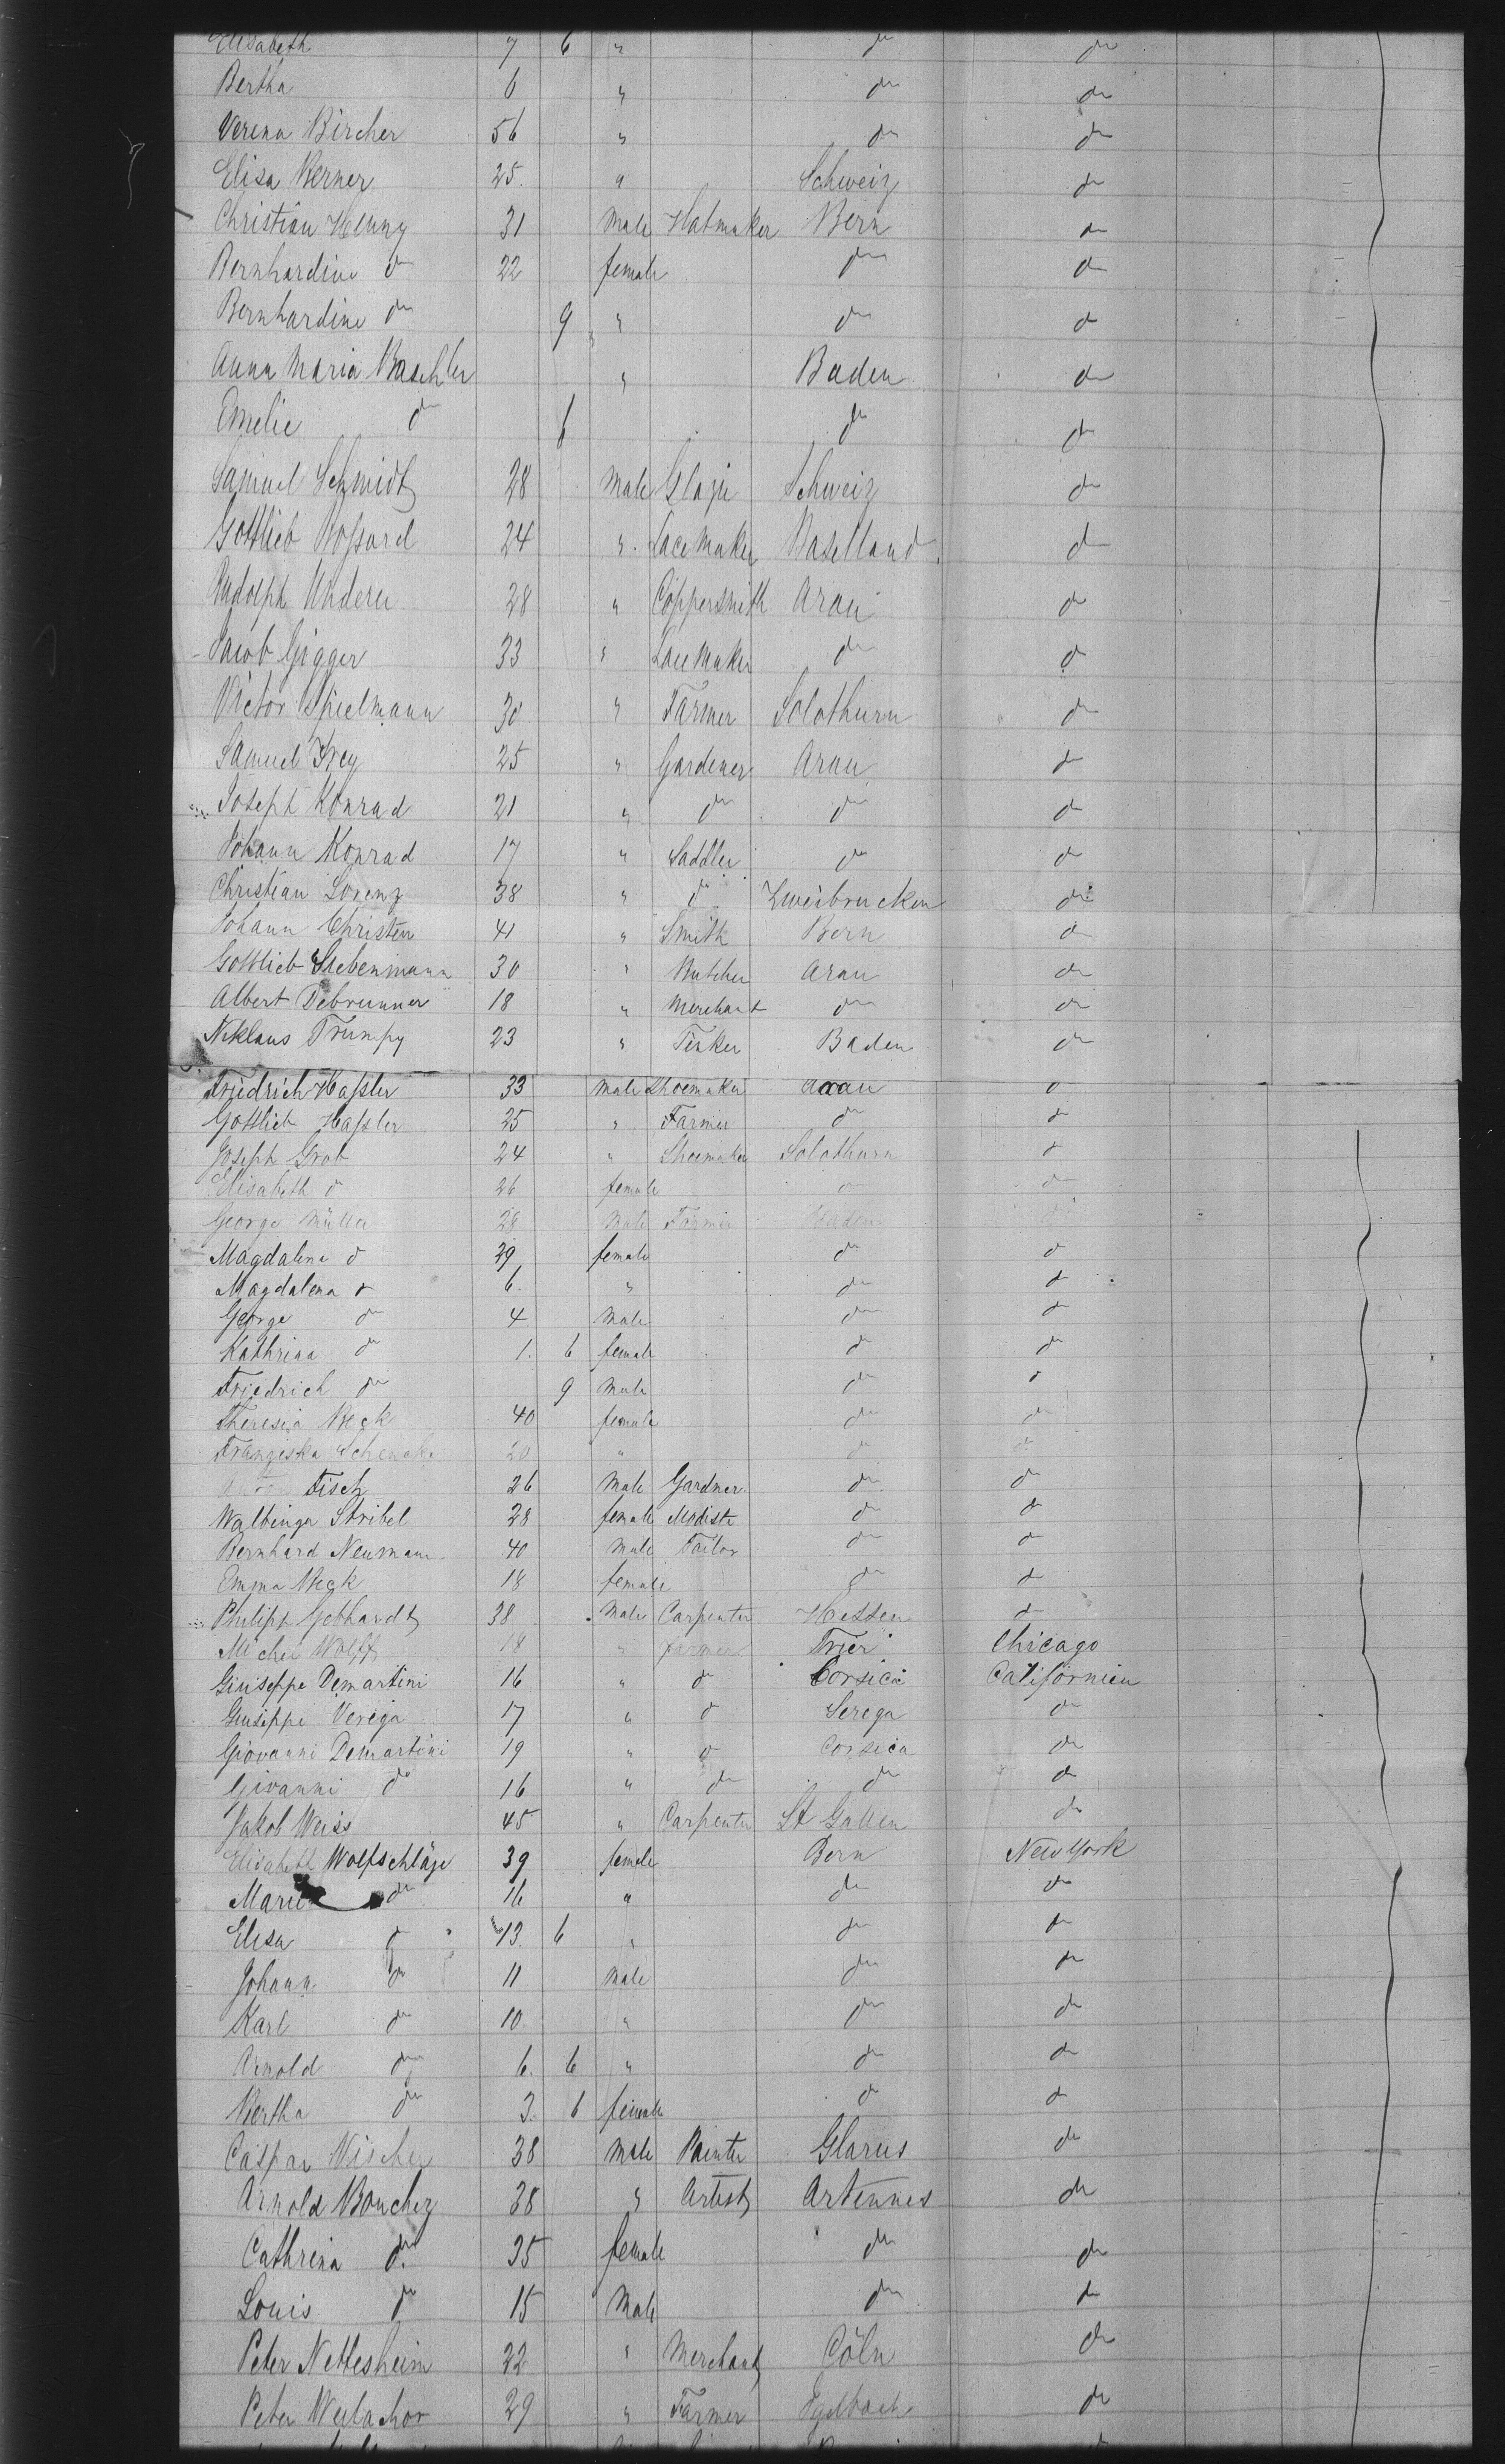 Elisabeth 7 6 " do do
Bertha 6 " do do
Verena Bircher 56 " do do
Elisa Berner 25. " Schweiz do
Christian Henny 31 Male Hatmaker Bern do
Bernhardine do 22 female do do
Bernhardine do 9 " do do
Anna Maria Baschler " Baden do
Emelie do 6 do do
Samuel Schmidt 28 Male Schweiz do
Gottlieb Boßard 24 " Lace Maker Baselland do
Rudolph 28 " Coppersmith Arau do
Jacob Gigger 33 " Lace Maker do do
Victor Spielmann 30 " Farmer Solothurn do
Samuel Frey 25 " Gardener Arau do
Joseph Konrad 21 " do do do
Johann Konrad 17 " Saddler do do
Christian Lorenz 38 " do Zweibrucken do
Johann Christen 41 " Smith Bern do
Gottlieb Siebenmann 30 " Butcher Arau do
Albert Debrunner 18 " Merchant do do
Niklaus Trumpy 23 " Tinker Baden do
Friedrich Haßler 33 Male Shoemaker Arau do
Gottlieb Haßler 25 " Farmer do do
Joseph Grob 24 " Shoemaker Solothurn do
Elisabeth do 26 female do do
George Müller 28 Male Farmer Baden do
Magdalena do 29 female do do
Magdalena do 6. " do do
George do 4 Male do do
Kathrina do 1. 6 female do do
Friedrich do 9 Male do do
Theresia Beck 40 female do do
Franziska 20 " do do
Fisch 26 Male Gardner do do
Walbinga Stribel 28 female Modiste do do
Bernhard Neumann 40 Male Tailor do do
Emma Beck 18 female do do
Philipp Gebhardt 38 Male Carpenter Hessen do
Michel Wolff 18 " farmer Trier Chicago
Giuseppe Demartini 16 " do Corsica Californien
Giuseppi Verega 17 " do Serega do
Giovanni Demartini 19 " do Corsica do
Givanni do 16 " do do do
Jakob Weiss 45 " Carpenter St Gallen do
Elisabeth Wolfschläge 39 female Bern New York
Marie do 16 " do do
Elisa do 13. 6 " do do
Johann do 11 Male do do
Karl do 10 " do do
Arnold do 6. 6 " do do
Bertha do 3. 6 female do do
Caspar Vischer 38 Male Painter Glarus do
Arnold Bouchez 38 " Artist Artennes do
Cathrina do 35 female do do
Louis do 15 Male do do
Peter Nettesheim 22 " Merchant Cöln do
Peter 29 " Farmer Egelbach do